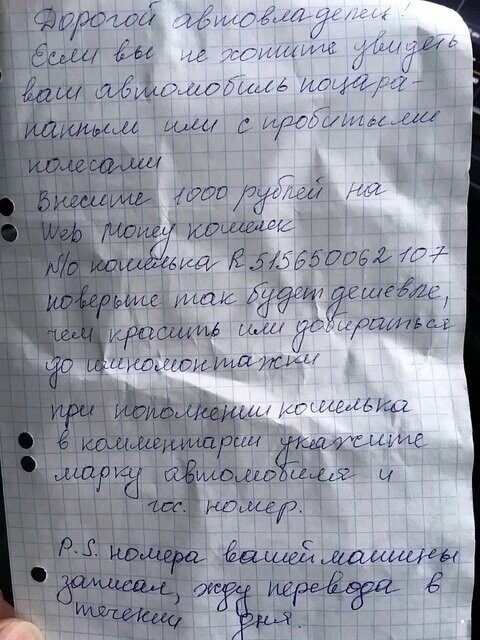 Дорогой автовладелец!
Если вы не хотите увидеть
ваш автомобиль поцара-
панным или с пробитыми
колесами
Внесите 1000 рублей на
Web Money кошелек
N/о кошелька R515650062107
поверьте так будет дешевле,
чем красить или добираться
до шиномонтажки
при пополнении кошелька
в комментарии укажите
марку автомобиля и
гос. номер.
P.S. номера вашей машины
записал, жду перевода в
течении дня.